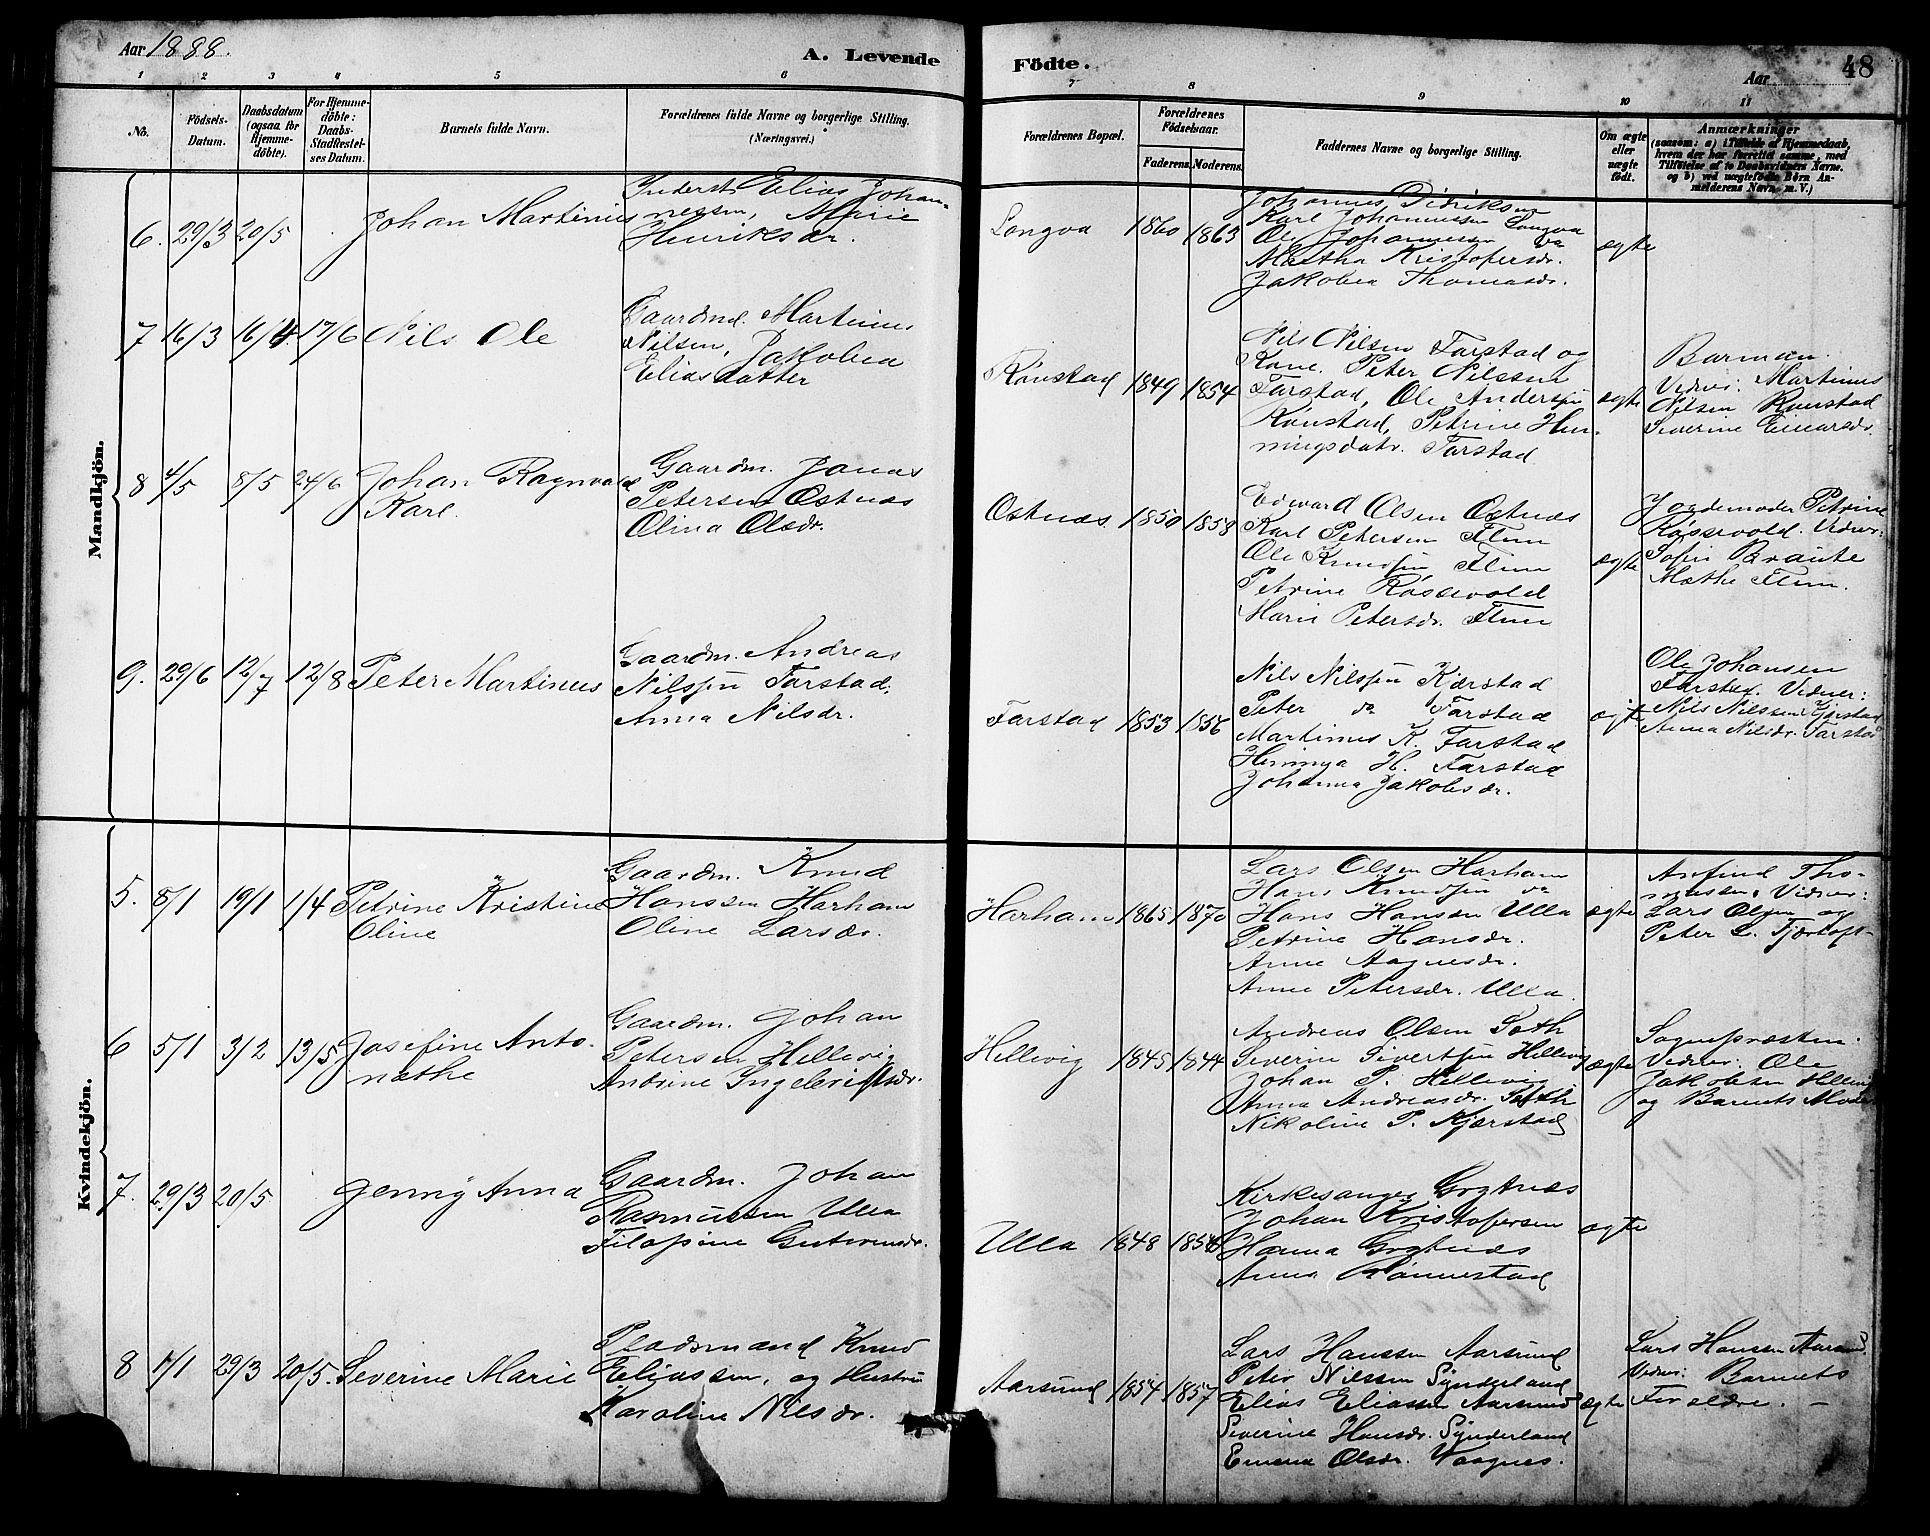 Aar 1888.
A. Levende
Födte.
Aar
48
1 2 3 4 5 6 7 8 9 10 11
No.
Födsels-
Datum.
Daabsdatum
(ogsaa for
Hjemme-
döbte).
For Hjemme-
döbte:
Daabs-
Stadfæstel-
ses Datum.
Barnets fulde Navn.
Forældrenes fulde Navne og borgerlige Stilling.
(Næringsvei.)
Forældrenes Bopæl.
Forældrenes
Födselsaar.
Faderens.
Moderens.
Faddernes Navne og borgerlige Stilling.
Om ægte
eller
uægte
födt.
Anmærkninger
(saasom: a) i Tilfælde af Hjemmedaab,
hvem der har forrettet samme, med
Tilföielse af to Daabsvidners Navne,
og b) ved uægtefödte Börn An-
melderens Navn, m. V.)
Mandkjön.
6. 29/3 20/5
Johan Martinus
Inderst Elias Johan-
nessen, Marie
Henriksdr.
Longva 1860 1863
Johannes Didriksen
Karl Johannessen Longva
Ole Johannessen do
Martha Kristofersdr.
Jakobea Thomasdr.
ægte
7 16/3 16/4 17/6
Nils Ole
Gaardmd. Martinus
Nilsen, Jakobea
Eliasdatter
Rønstad 1849 1854
Nils Nilsen Farstad og
Kone. Peter Nilssen
Farstad, Ole Andersen
Rønstad, Petrine Hen-
ningsdatr. Farstad
ægte
Barman.
Vidner: Martinus
Nilsen Rønstad
Severine Einarsdr.
8 4/5 8/5 24/6
Johan Ragnvald
Karl.
Gaardm. Jonas
Petersen Østnæs
Olina Olsdr.
Østnæs 1850 1858
Edvard Olsen Østnæs
Karl Petersen Flem
Ole Knudsen Flem
Petrine Røssevold
Marie Petersdr. Flem
ægte
Jordemoder Petrine
Røssevold. Vidner:
Sofie Braute
Mathe Flem.
9. 29/6 12/7 12/8
Peter Martinus
Gaardm. Andreas
Nilssen Farstad,
Anna Nilsdr.
Farstad 1853 1856
Nils Nilssen Kjærstad
Peter do Farstad
Martinus K. Farstad
Heninga H. Farstad
Johanna Jakobsdr.
ægte
Ole Johansen
Farstad. Vidner:
Nils Nilssen Kjærstad
Anna Nilsdr. Farstad
Kvindekjön.
5. 8/1 19/1 1/4
Petrine Kristine
Oline
Gaardm. Knud
Hanssen Harham
Oline Larsdr.
Harham 1865 1870
Lars Olsen Harham
Hans Knudsen do
Hans Hansen Ulla
Petrine Hansdr.
Anne Aagnesdr.
Anne Petersdr. Ulla.
ægte
Anfind Tho-
massen. Vidner:
Lars Olsen og
Peter L. Fjørtoft
6 5/1 3/2 13/5
Josefine Anto-
nathe
Gaardm. Johan
Petersen Hellevig
Andrine Ingebrigtsdr.
Hellevig 1845 1844
Andreas Olsen Søth
Severine Sivertsen Hellevig
Johan P. Hellevig
Anna Andreasdr. Søth
Nikoline P. Kjærstad
ægte
Sognepræsten.
Vidner: Ole
Jakobsen Hellevig
og Barnets Moder
7. 29/3 20/5
Jenny Anna
Gaardm. Johan
Rasmussen Ulla
Filopine Guttormsdr.
Ulla 1848 1854
Kirkesanger Grytnæs
Johan Kristofersen
Hanna Grytnæs
Anna Rønnestad
ægte
8 7/1 29/3 20/5.
Severine Marie
Pladsmand Knud
Eliassen, og Hustru
Karoline Nilsdr.
Aarsund 1854 1857
Lars Hanssen Aarsund
Peter Nilssen Synderland
Elias Eliassen Aarsund
Severine Hansdr. Synderland
Emma Olsdr. Vaagnes.
ægte
Lars Hanssen Aarsund.
Vidner: Barnets
Forældre. –